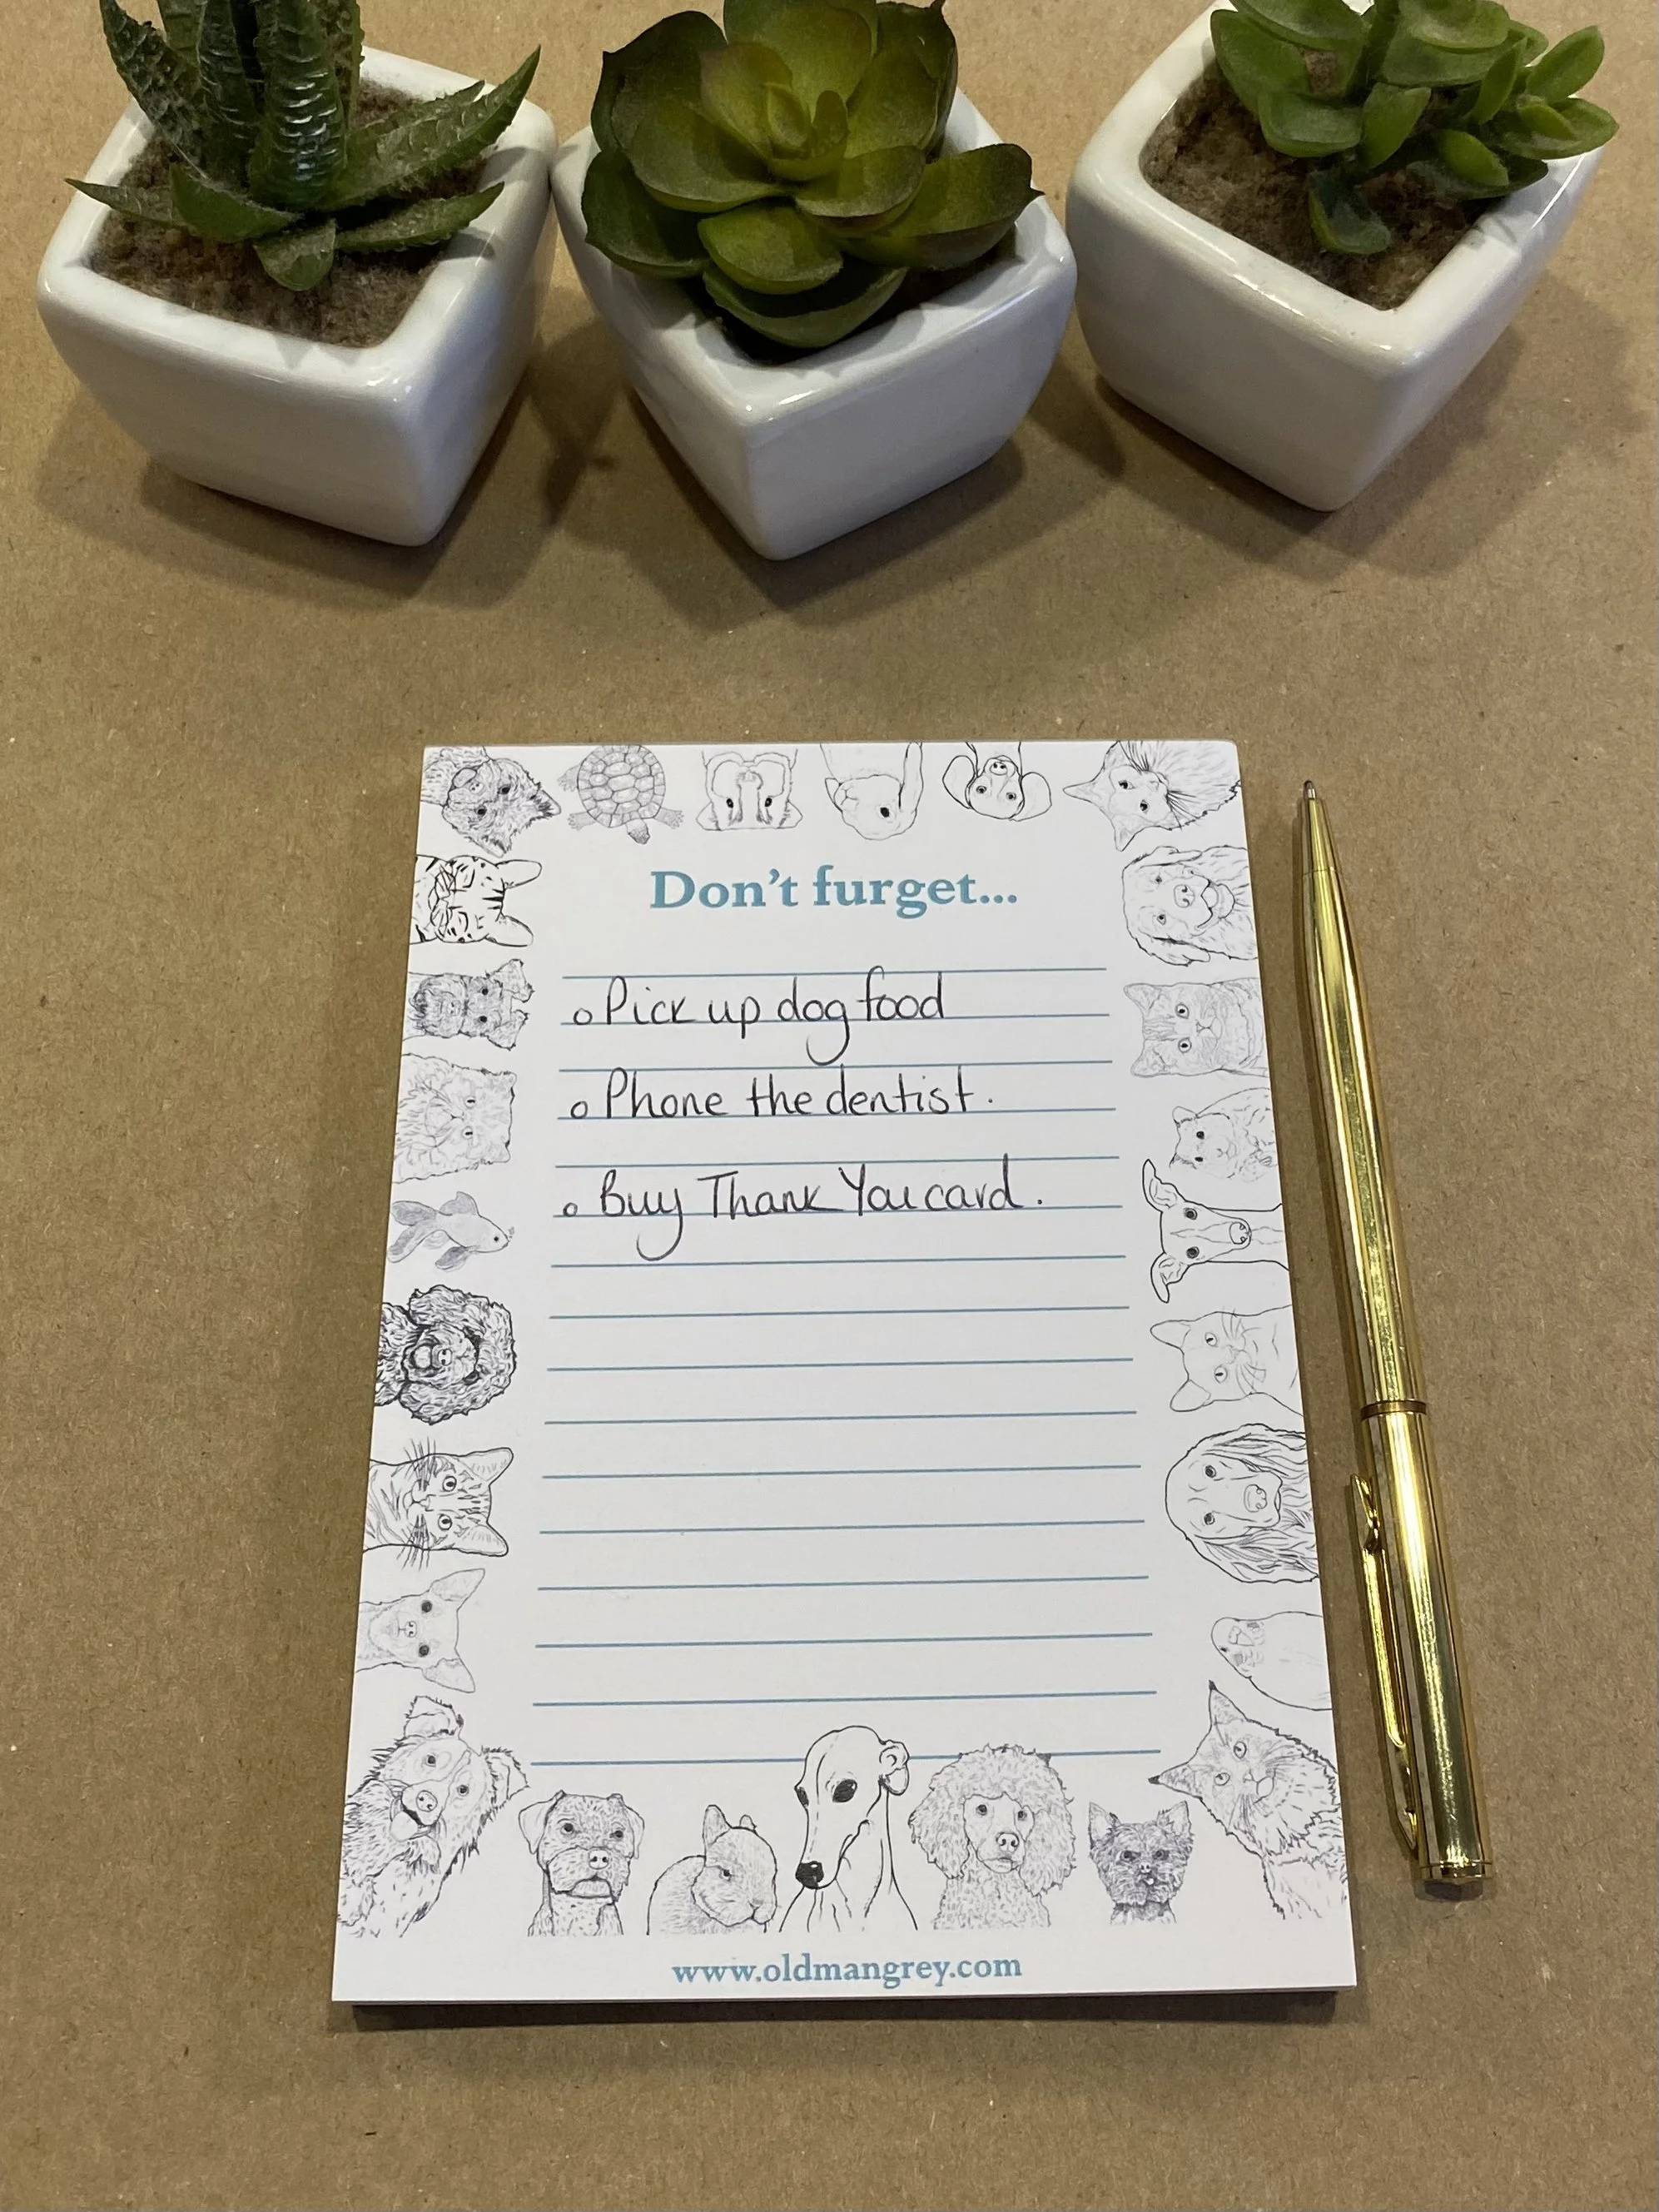 Don't furget...
o Pick up dog food
o Phone the dentist.
o Buy Thank You card.
www.oldmangrey.com